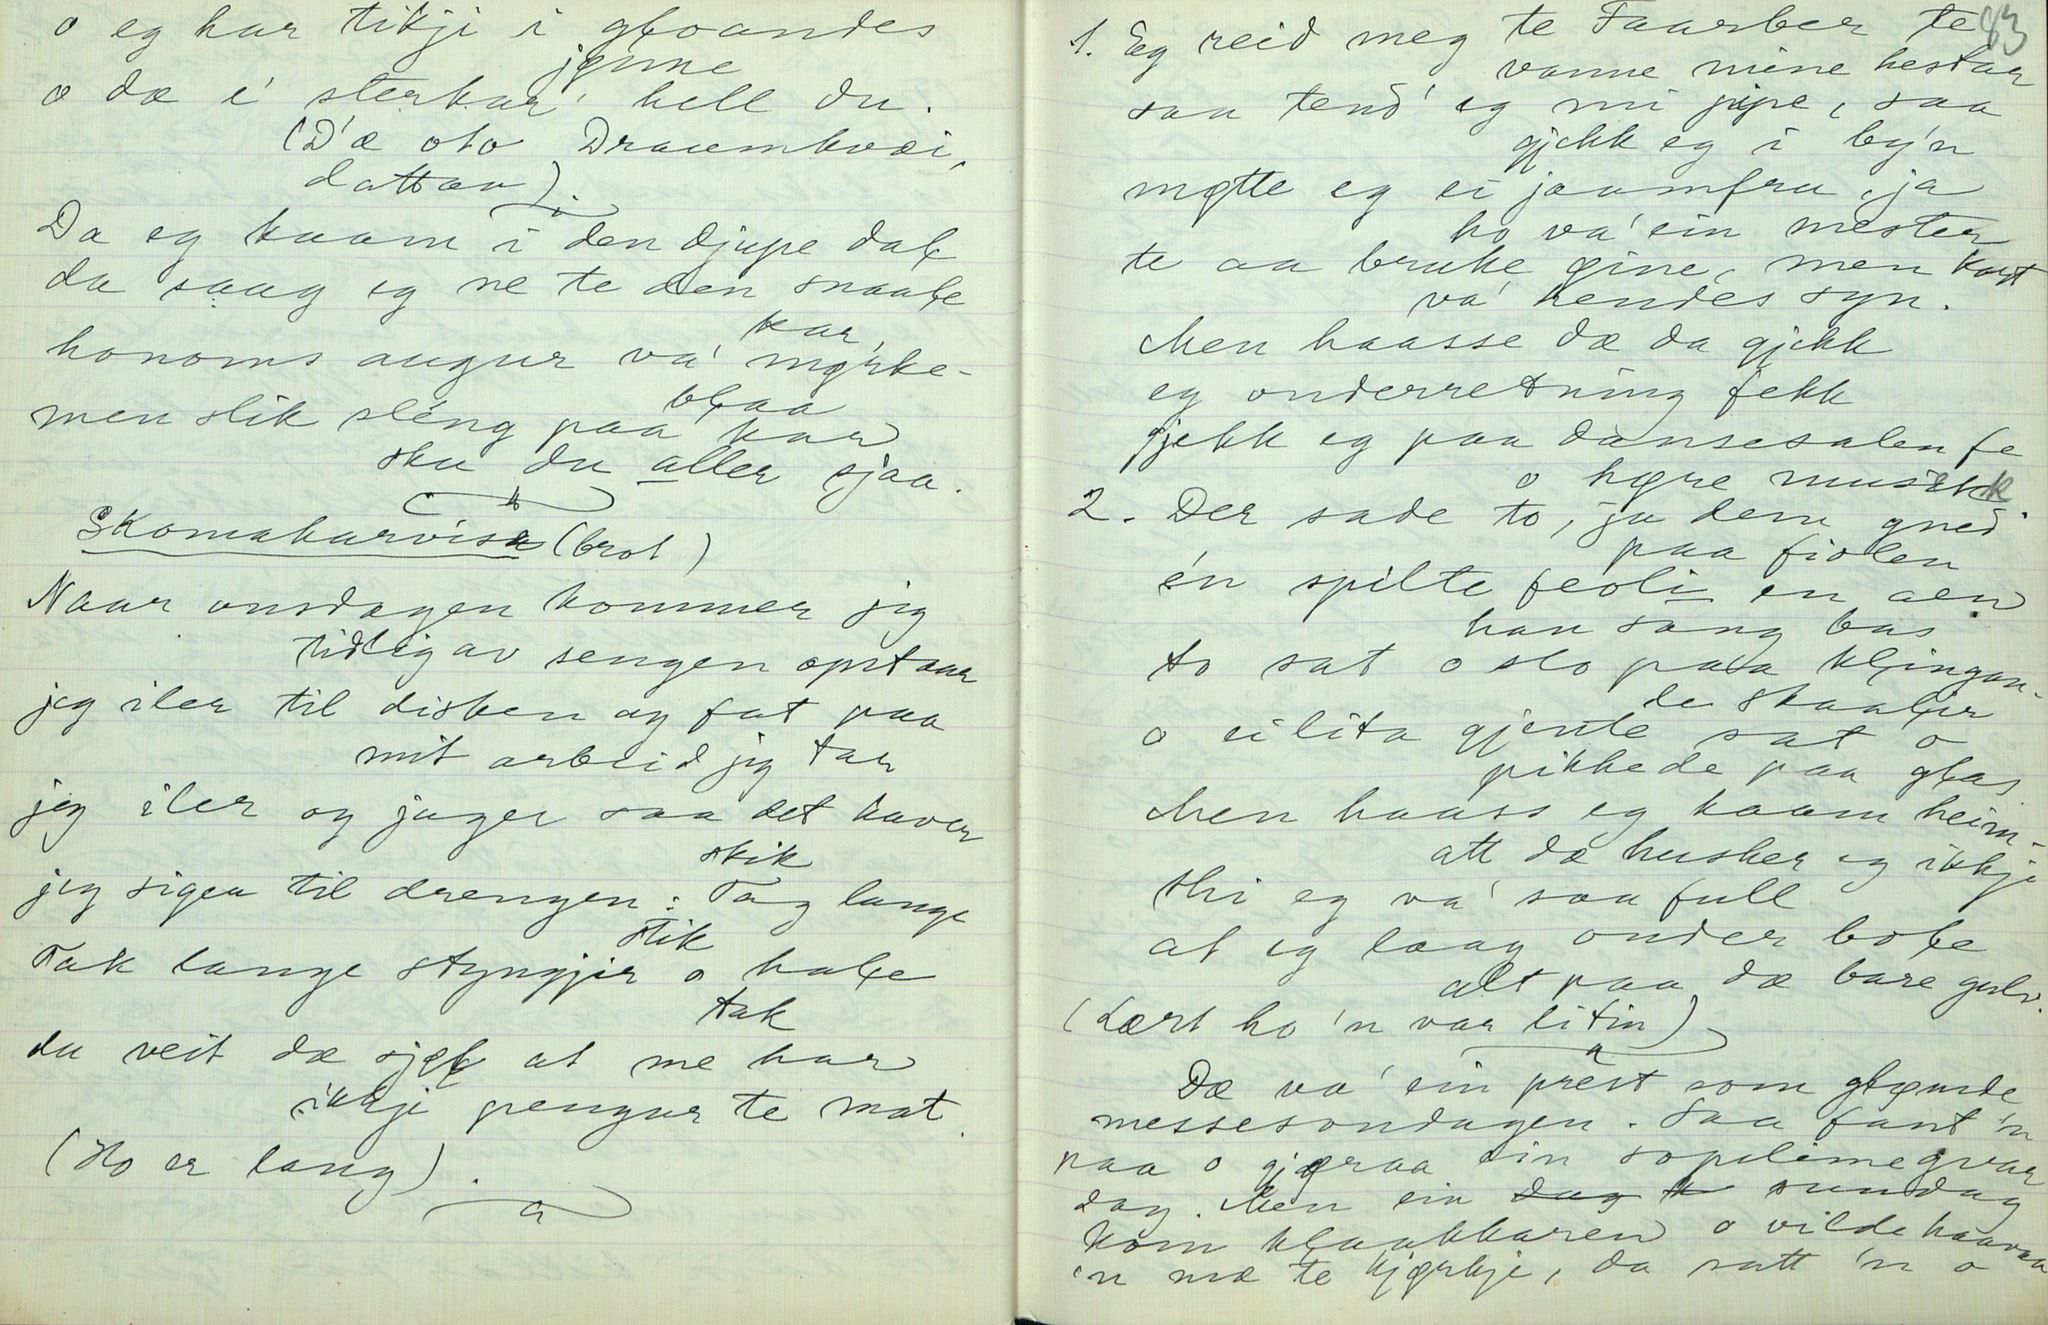 o eg har tikji i gloandes
jønne
o dæ e' sterkar' hell du.
(D'æ oto Draumkvæi,
dattan).
Da eg kaam i den djupe dal
da saag eg ne te den snaale
kar,
honoms augur va' mørke-
blaa
men slik sleng paa kar
sku du aller sjaa.
Skomakarvisa (brot)
Naar onsdagen kommer jeg
tidlig av sengen opstaar
jeg iler til disken og fat paa
mit arbeid jeg tar
jeg iler og jager saa det haver
skik
jeg siger til drengen: Tag lange
stik
Tak lange styngjir o hale
tak
du veit dæ sjøl at me har
ikkje pengur te mat.
(Ho er lang).
83
1. Eg reid meg te Faarber te
vanne mine hestar
saa tend' eg mi pipe, saa
gjekk eg i by'n
møtte eg ei jaamfru, ja
ho va' ein mester
te aa bruke øine, men kort
va' hendes syn.
Men haasse dæ da gjekk
eg onderretning fekk
gjekk eg paa dansesalen fe
o høre musikk
2. Der sade to, ja dem gned'
paa fiolen
én spilte feoli en aen
han sang bas
to sat o slo paa klingan-
de skaalir
o ei lita gjente sat o
pikkede paa glas
Men haass eg kaam heim-
att dæ husker eg ikkje
thi eg va' saa full
at eg laag onder bole
alt paa dæ bare gulv.
(Lært ho 'n var litin)
Dæ va' ein prest som gløymde
messesondagen. Saa fant 'n
paa o gjøraa ein sopelime qvar
dag. Men ein dag k sundag
kom klaakkaren o vilde haavaa
'n mæ te kjørkje, da satt 'n o